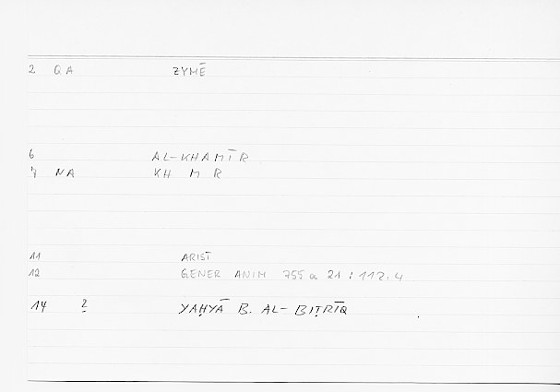 2 QA ZYMĒ
6 AL-KHAMĪR
7 NA KH M R
11 ARIST
12 GENER ANIM 755 a 21 : 112.4
14 2 YAḤYĀ B. AL-BIṬRĪQ